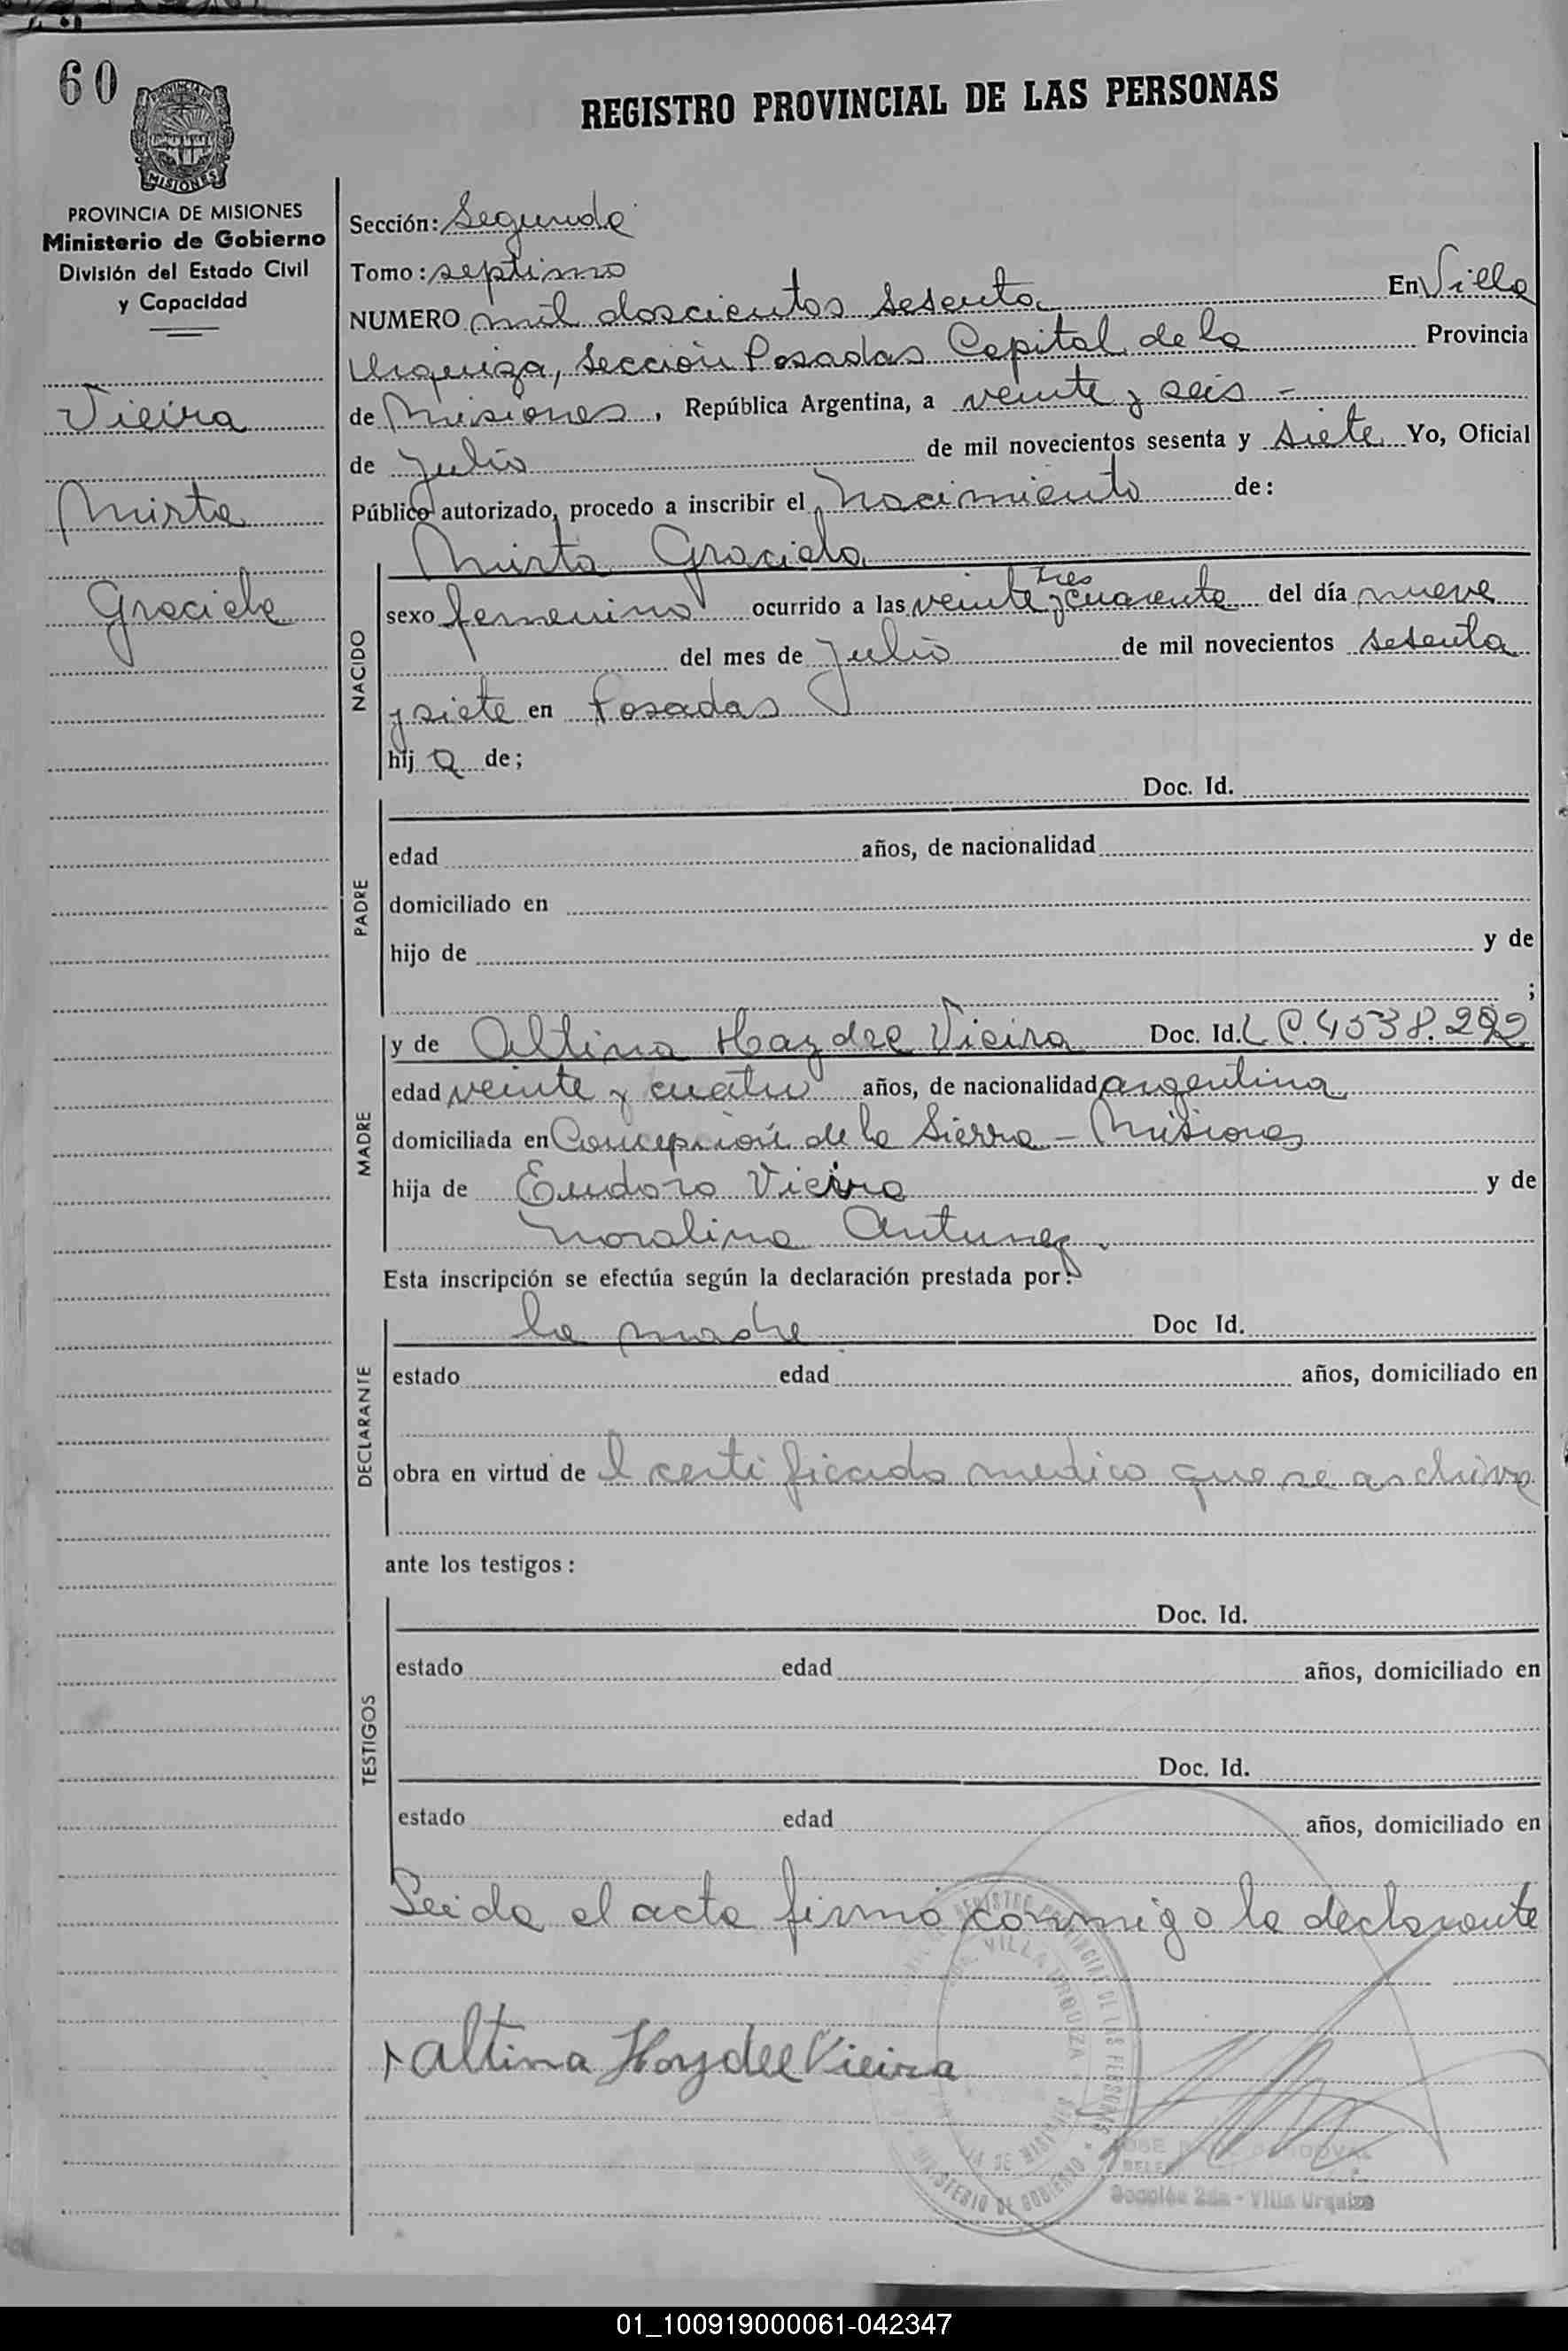 60
MISIONES
REGISTRO PROVINCIAL DE LAS PERSONAS
PROVINCIA DE MISIONES
Ministerio de Gobierno
División del Estado Civil
y Capacidad
Vieira
Mirta
Graciela
Sección: Segunda
Tomo: septimo
NUMERO mil doscientos sesenta En Villa
Urquiza, Sección Posadas Capital de la Provincia
de Misiones, República Argentina, a veinte y seis -
de Julio de mil novecientos sesenta y siete Yo, Oficial
Público autorizado, procedo a inscribir el Nacimiento de:
Mirta Graciela
NACIDO
tres
sexo femenino ocurrido a las veinte y cuarenta del día nueve
del mes de Julio de mil novecientos sesenta
y siete en Posadas
hij a de;
PADRE
Doc. Id.
edad años, de nacionalidad
domiciliado en
hijo de y de
;
MADRE
y de Altina Haydee Vieira Doc. Id. L C. 4538.292
edad veinte y cuatro años, de nacionalidad argentina
domiciliada en Concepción de la Sierra - Misiones
hija de Eudoro Vieira y de
Moralina Antunez.
Esta inscripción se efectúa según la declaración prestada por:
DECLARANTE
la madre Doc Id.
estado edad años, domiciliado en
obra en virtud de l certificado medico que se archiva
ante los testigos:
TESTIGOS
Doc. Id.
estado edad años, domiciliado en
Doc. Id.
estado edad años, domiciliado en
Leida el acta firmó conmigo la declarante
Altina Haydee Vieira
REGISTRO PROVINCIAL DE LAS PERSONAS
VILLA URQUIZA
MINISTERIO DE GOBIERNO
JOSE SANDOVAL
Sección 2da - Villa Urquiza
01_100919000061-042347